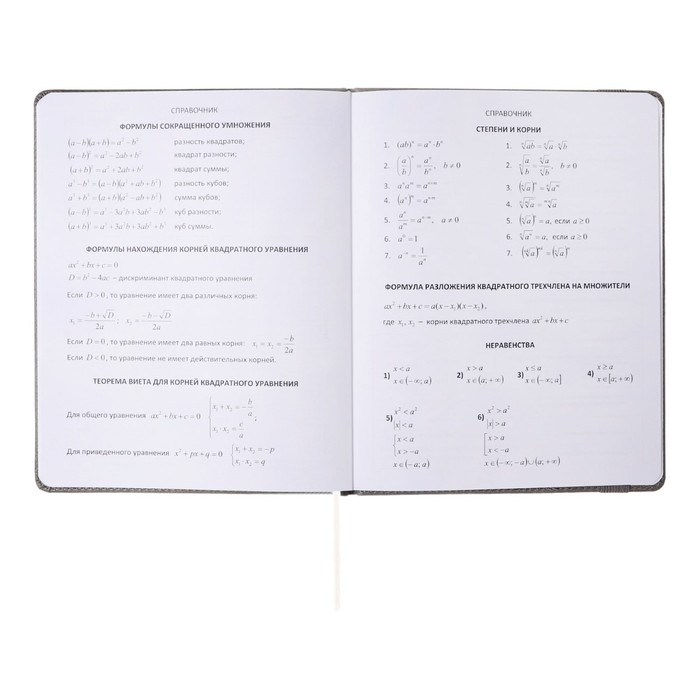 СПРАВОЧНИК
ФОРМУЛЫ СОКРАЩЕННОГО УМНОЖЕНИЯ
(a−b)(a+b)=a²−b² разность квадратов;
(a−b)²=a²−2ab+b² квадрат разности;
(a+b)²=a²+2ab+b² квадрат суммы;
a³−b³=(a−b)(a²+ab+b²) разность кубов;
a³+b³=(a+b)(a²−ab+b²) сумма кубов;
(a−b)³=a³−3a²b+3ab²−b³ куб разности;
(a+b)³=a³+3a²b+3ab²+b³ куб суммы.
ФОРМУЛЫ НАХОЖДЕНИЯ КОРНЕЙ КВАДРАТНОГО УРАВНЕНИЯ
ax²+bx+c=0
D=b²−4ac – дискриминант квадратного уравнения
Если D>0, то уравнение имеет два различных корня:
x₁=(−b+√D)/2a; x₂=(−b−√D)/2a
Если D=0, то уравнение имеет два равных корня: x₁=x₂=−b/2a
Если D<0, то уравнение не имеет действительных корней.
ТЕОРЕМА ВИЕТА ДЛЯ КОРНЕЙ КВАДРАТНОГО УРАВНЕНИЯ
Для общего уравнения ax²+bx+c=0 {x₁+x₂=−b/a
x₁·x₂=c/a;
Для приведенного уравнения x²+px+q=0 {x₁+x₂=−p
x₁·x₂=q
СПРАВОЧНИК
СТЕПЕНИ И КОРНИ
1. (ab)ⁿ=aⁿ·bⁿ
2. (a/b)ⁿ=aⁿ/bⁿ, b≠0
3. aⁿaᵐ=aⁿ⁺ᵐ
4. (aⁿ)ᵐ=aⁿᵐ
5. aⁿ/aᵐ=aⁿ⁻ᵐ, a≠0
6. a⁰=1
7. a⁻ⁿ=1/aⁿ
1. ⁿ√ab=ⁿ√a·ⁿ√b
2. ⁿ√(a/b)=ⁿ√a/ⁿ√b, b≠0
3. (ⁿ√a)ᵐ=ⁿ√aᵐ
4. ᵐ√ⁿ√a=ᵐⁿ√a
5. (ⁿ√a)ⁿ=a, если a≥0
6. ⁿ√aⁿ=a, если a≥0
7.
ФОРМУЛА РАЗЛОЖЕНИЯ КВАДРАТНОГО ТРЕХЧЛЕНА НА МНОЖИТЕЛИ
ax²+bx+c=a(x−x₁)(x−x₂),
где x₁,x₂ – корни квадратного трехчлена ax²+bx+c
НЕРАВЕНСТВА
1) x<a
x∈(−∞;a)
2) x>a
x∈(a;+∞)
3) x≤a
x∈(−∞;a]
4) x≥a
x∈[a;+∞)
5) x²<a²
|x|<a
{x<a
x>−a
x∈(−a;a)
6) x²>a²
|x|>a
[x>a
x<−a
x∈(−∞;−a)∪(a;+∞)